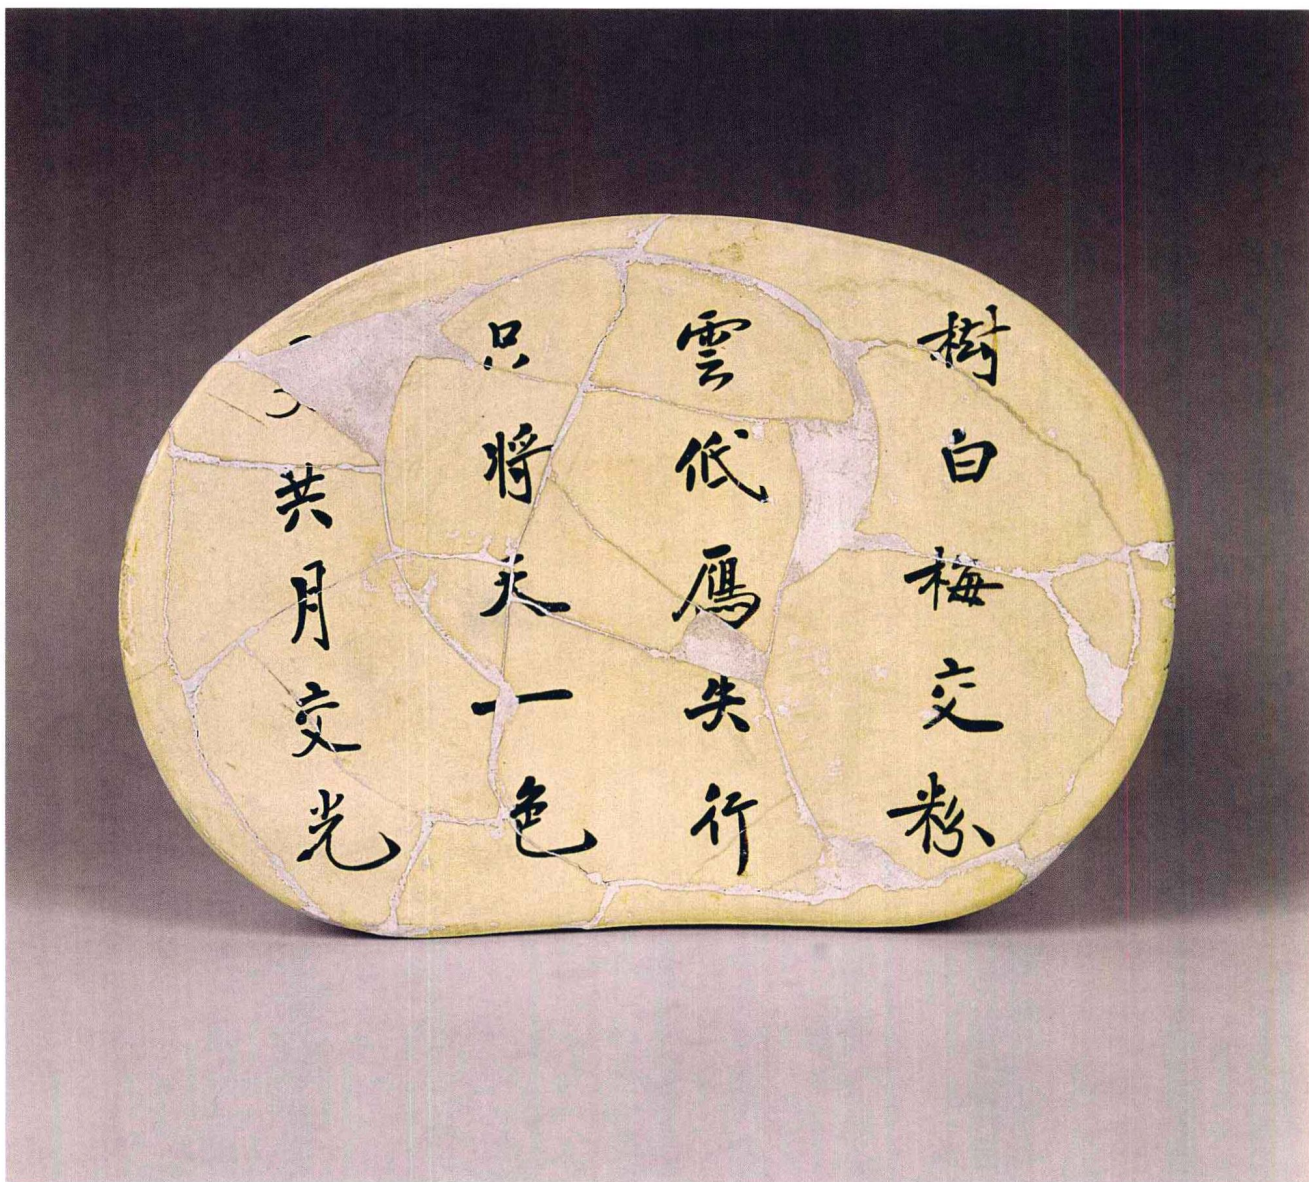 樹白梅交粉
雲低鴈失行
只將天一色
共月交光